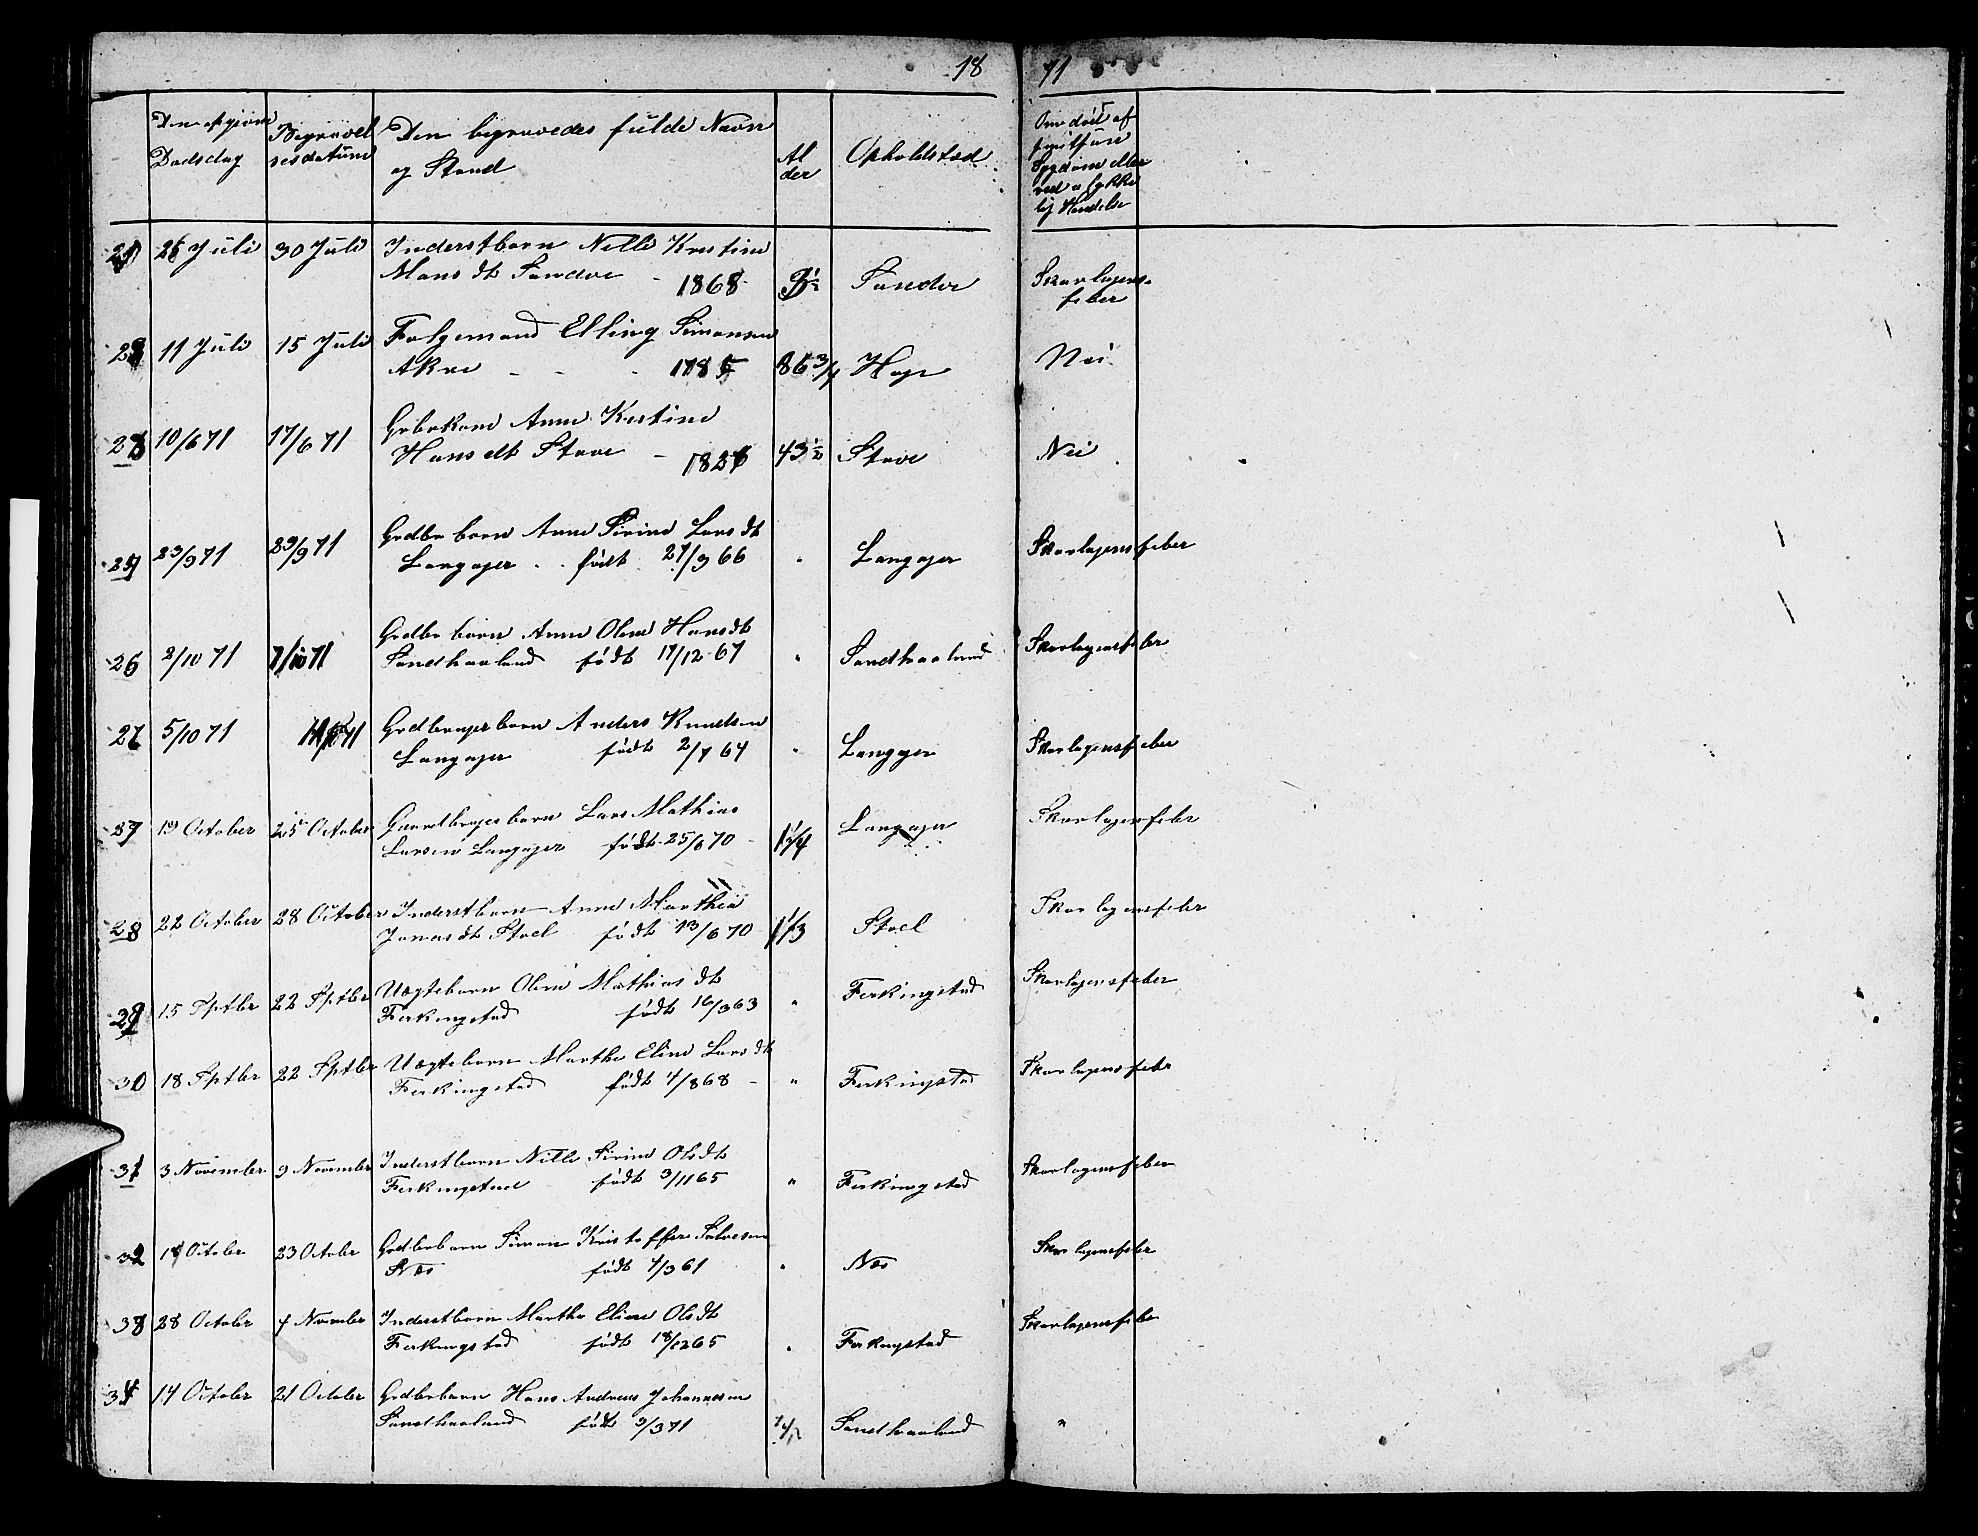 18 71
Den opgivne Dødsdag
Begravelsesdatum
Den begravedes fulde Navn og Stand
Alder
Opholdsted
Om død af smitsom Sygdom eller ved ulykkelig Hændelse
26 Juli 30 Juli Inderstbarn Nille Kristine
Mons dt Sandve - 1868 Sandve Skarlagens-feber
11 Juli 15 Juli Følgemand Elling Simonsen
Akre - - - 1785 86 3/4 Nei
10/6 71 17/6 71 Gbrkone Anne Kristine
Hans dt Stave - 43 1/2 Stave Nei
23/9 71 29/9 71 Grdbr barn Anne Sirine Lars dt
Langager . . født 27/9 66 " Langager Skarlagensfeber
26 2/10 71 7/10 71 Grdbr barn Anne Oline Hans dt
Sandhaaland født 17/12 67 " Sandhaaland Skarlagensfeber
5/10 71 Grdbrugerbarn Anders Knudsen
Langager født 2/7 64 " Langager Skarlagensfeber
27 19 October 25 October Gaardbrugerbarn Lars Mathias
Larsen Langager født 25/6 70 1 1/4 Langager Skarlagensfeber
28 22 October 28 October Inderstbarn Anne Marthea
Jonas dt Stoel født 13/6 70 1 1/3 Stoel Skarlagensfeber
29 15 Sptbr 22 Sptbr Vægtebarn Oline Mathias dt
Ferkingstad født 16/3 63 " Ferkingstad Skarlagensfeber
30 18 Sptbr 22 Sptbr Vægtebarn Marthe Eline Lars dt
Ferkingstad født 4/8 68 - " Ferkingstad Skarlagensfeber
31 3 November 9 November Inderstbarn Nille Sirine Ols dt
Ferkingstad født 3/11 65 " Ferkingstad Skarlagensfeber
32 18 October 23 Octobr Grdbrbarn Simon Kristoffer Salvesen
Næs født 4/3 61 " Næs Skarlagensfeber
33 28 Octobr 4 November Inderstbarn Marthe Eline Ols dt
Ferkingstad født 18/12 65 " Ferkingstad Skarlagensfeber
34 14 Octobr 21 Octobr Grdbrbarn Hans Andreas Johannesen
Sandhaaland født 9/3 71 Sandhaaland "